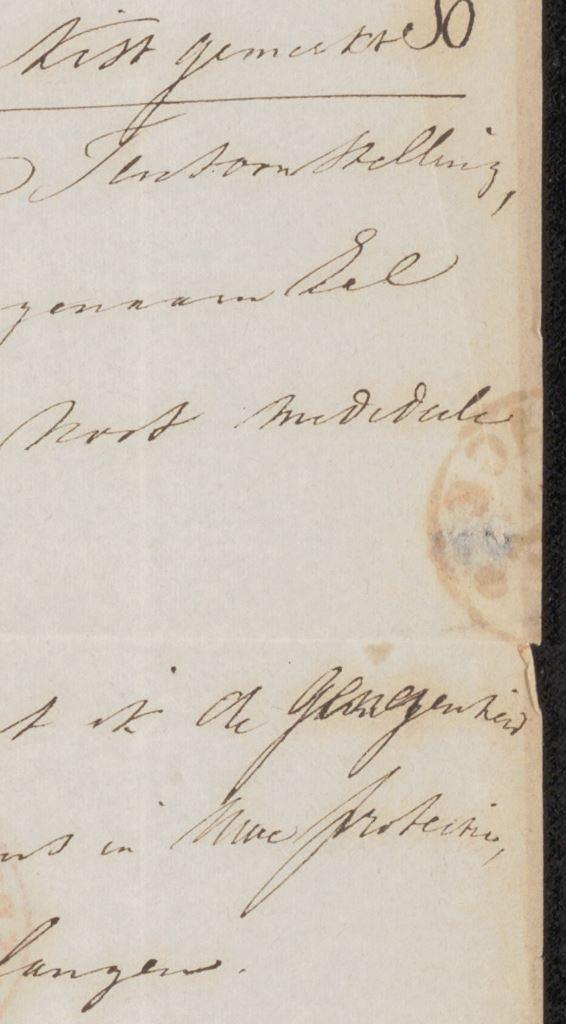 Kist gemerkt SO
Tentoonstelling,
genaam Zal
mededeele
t ik de gelegenheid
in Uwe protectie,
langen.